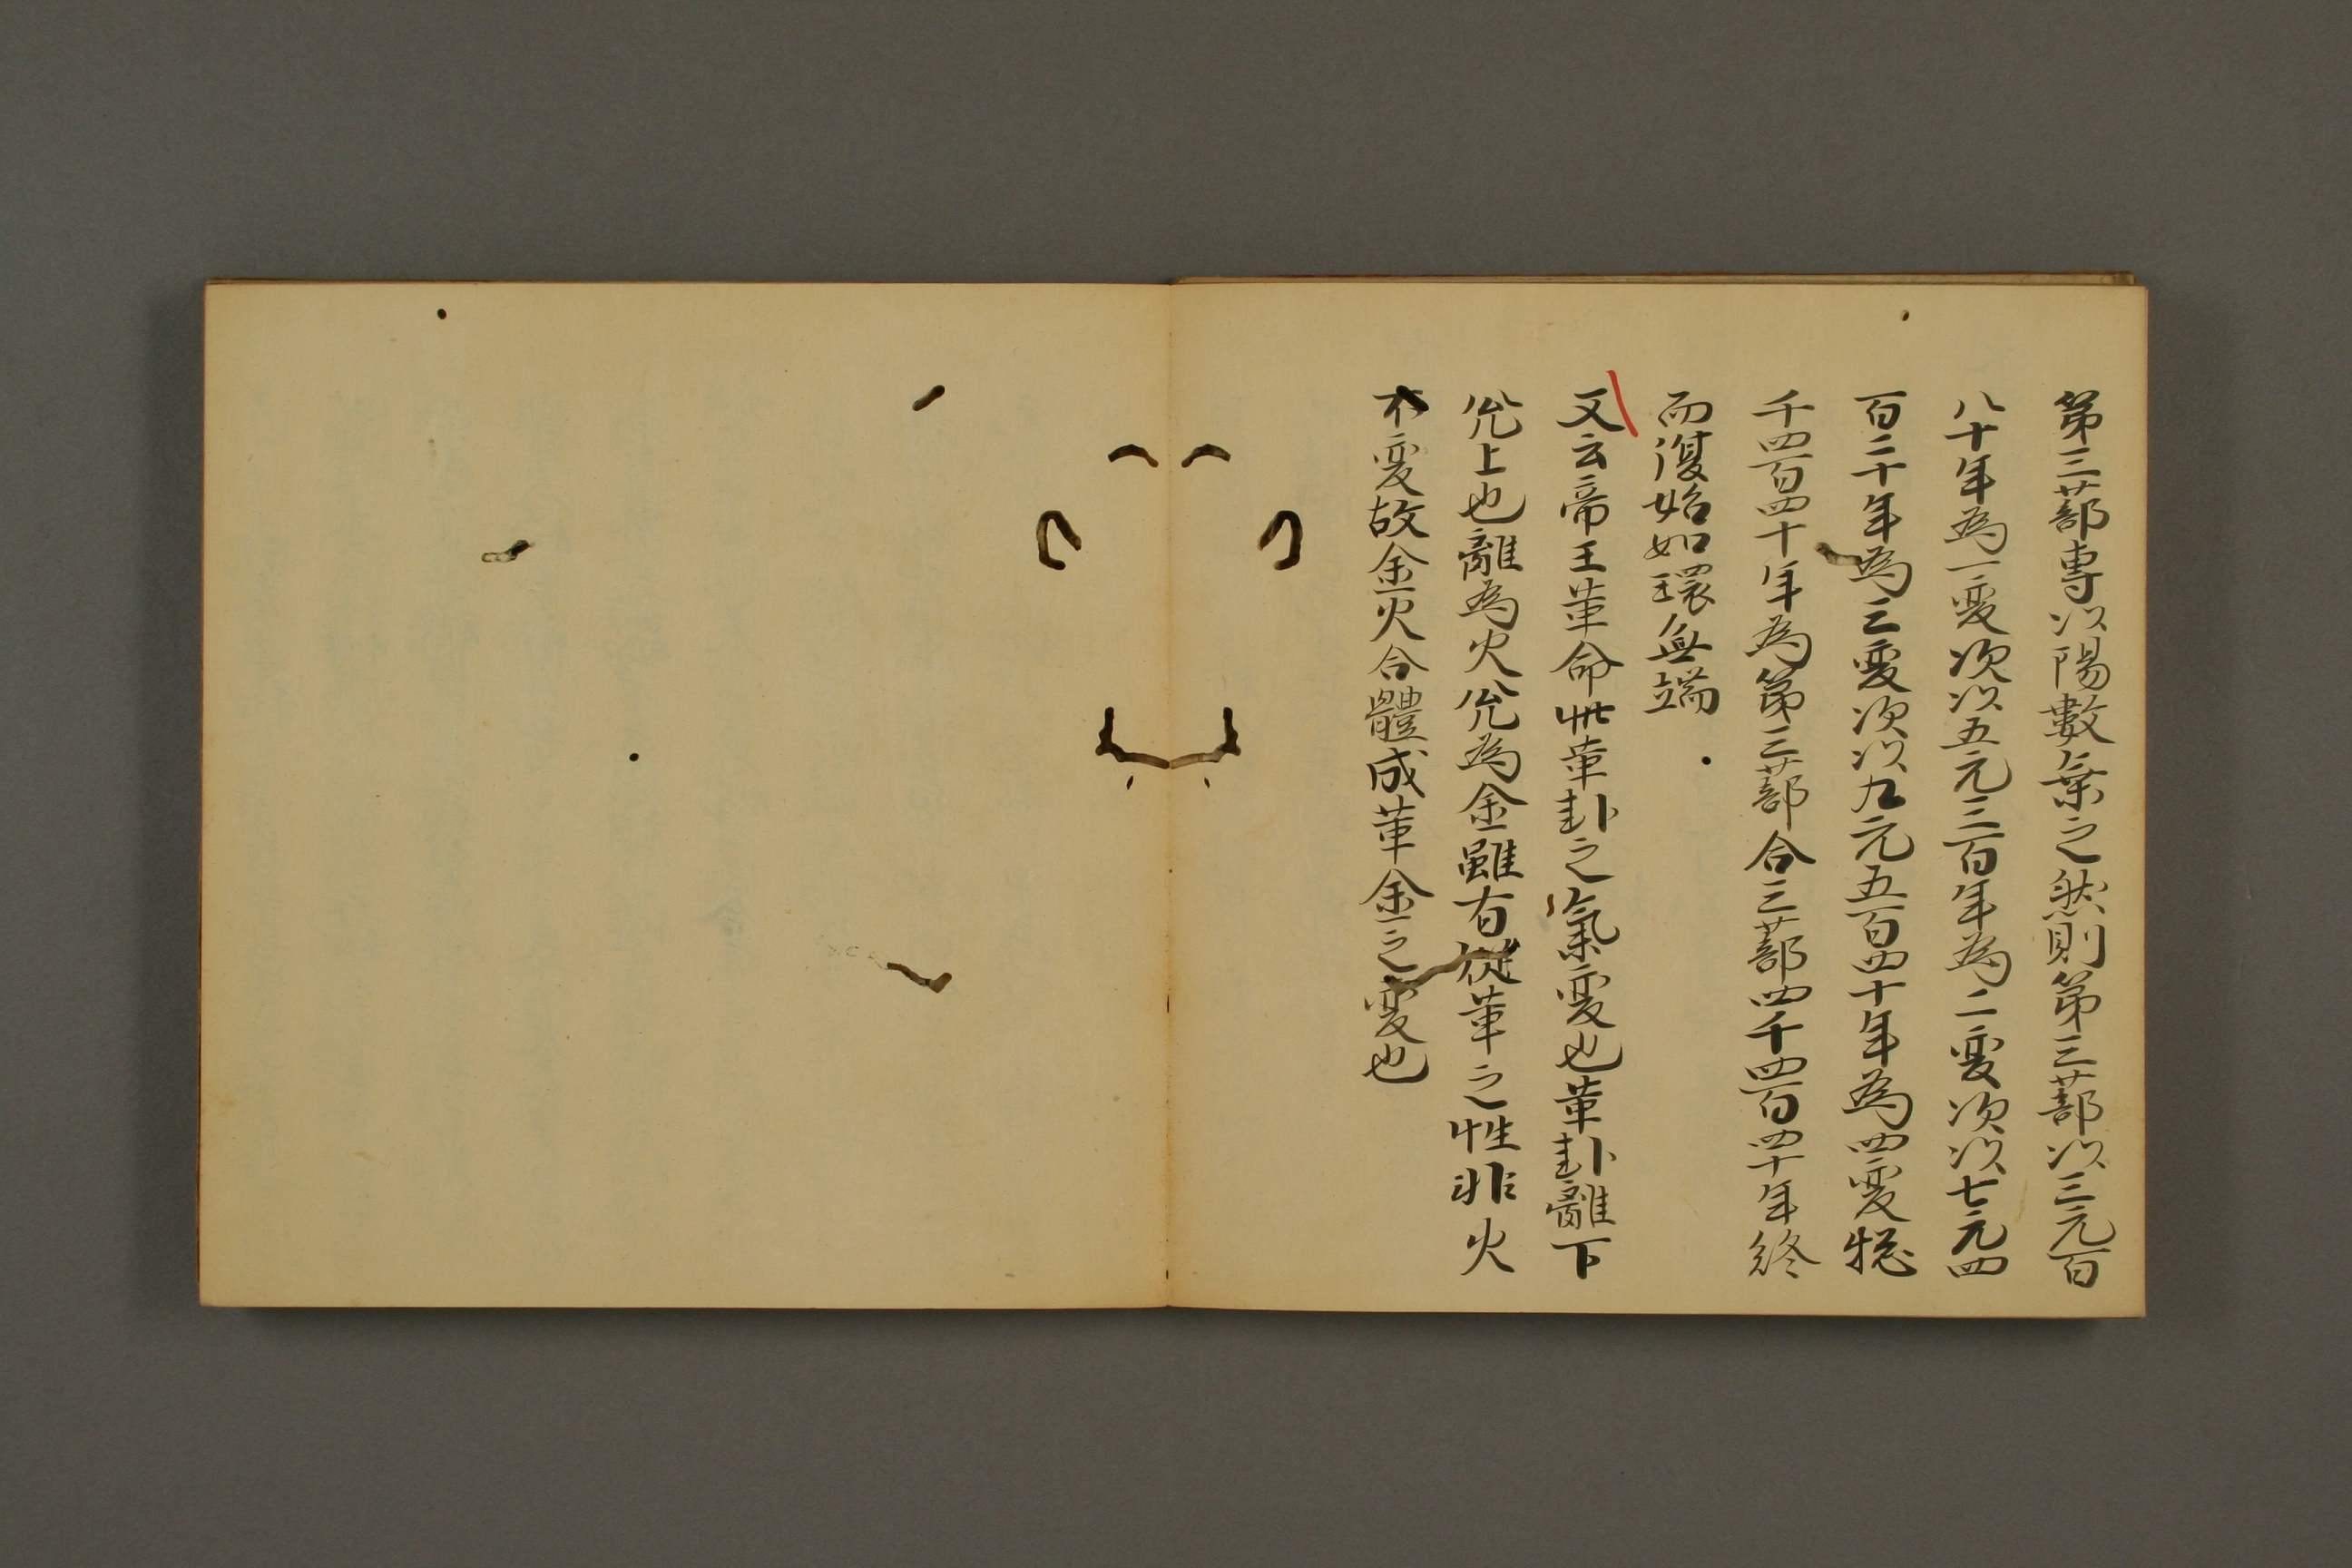 第三蔀専以陽數乗之然則第三蔀以三元百
八十年為一変次以五元三百年為二変次以七元四
百二十年為三変次以九元五百四十年為四変惣
千四百四十年為第三蔀合三蔀四千四百四十年終
而復始如環無端
又云帝王革命此革卦之氣変也革卦離下
兊上也離為火兊為金雖有從革之性非火
不変故金火合體成革金之変也